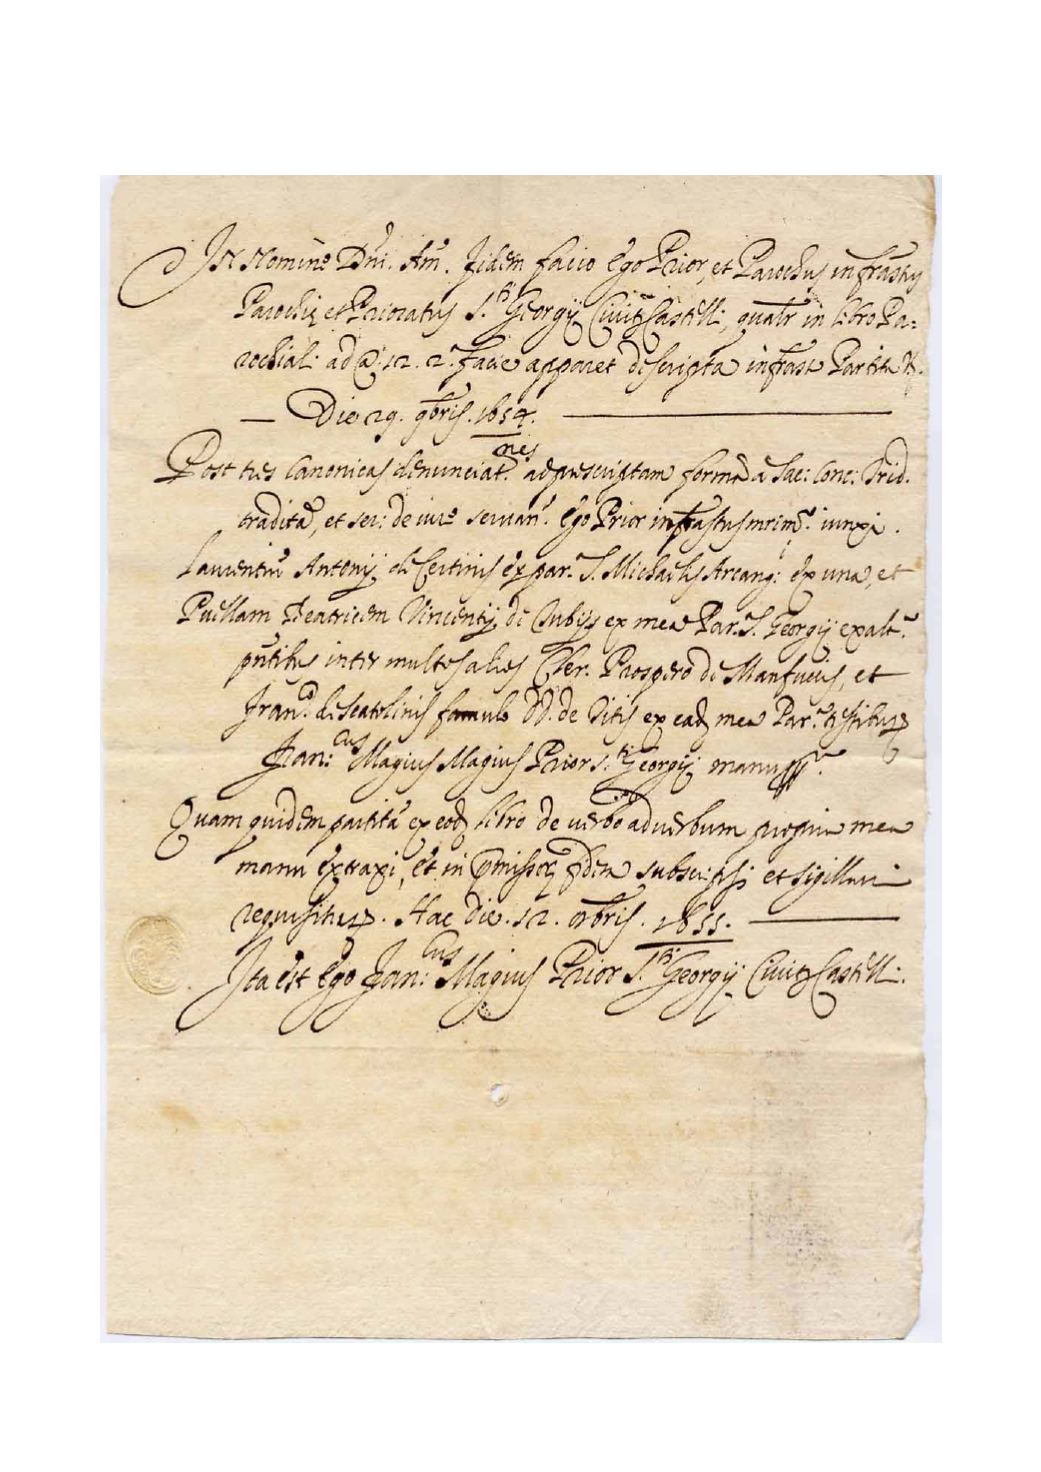 In Nomine Dni. Am. Fidem facio Ego Prior, et Parochus infrastus
Parochie et Prioratus S.ti Georgij Civit. Castelli, qualr in libro Pa=
rochiali ad @. 12. 2. facie apparet descripta infrast. Partita
— Die 29. 9bris. 1654.
Post tres Canonicas denunciat.nes ad prescriptam formã a Sac: Conc: Trid.
traditã, et ser: de iure servan. Ego Prior infrastus mrim. iunxi.
Laurentiũ Antonij de Certinis ex par. S. Michaelis Arcang: ex una, et
Puellam Beatricem Vincentij de Cubijs ex mea Par. S. Georgij ex alt.
pntibus inter multos alios Cler. Prospero de Manfuciis, et
Fran.o de Scatolinis famulo DD. de Vitis ex ead. mea Par. testibus
Fran:cus Magius Magius Prior S.ti Georgij manu
Quam quidem partitã ex eod. libro de verbo ad verbum propria mea
manu extraxi, et in pmissor. fidem subscripsi et sigillavi
requisitus. Hac die. 12. Xbris. 1655.
Ita est Ego Fran:cus Magius Prior S.ti Georgij Civit. Castelli.